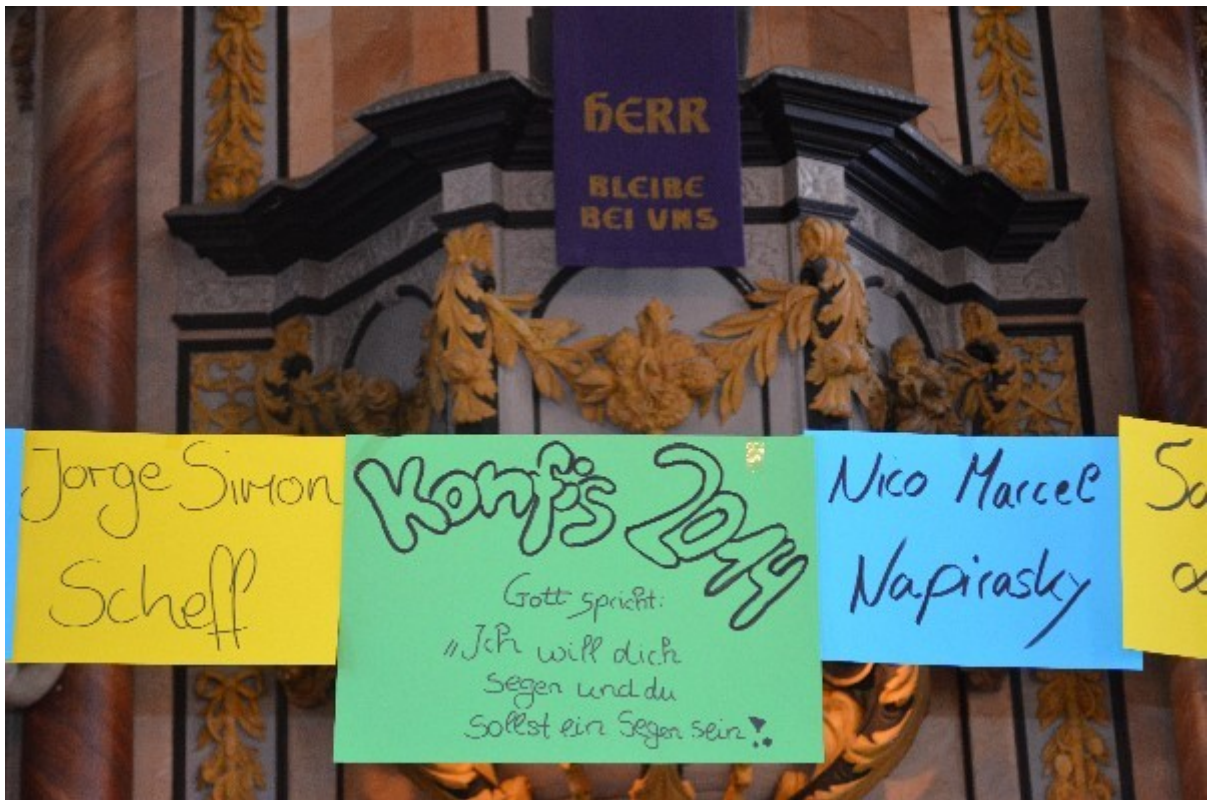 HERR
BLEIBE
BEI UNS
Jorge Simon
Scheff
Konfis 2014
Gott spricht:
„Ich will dich
segen und du
sollst ein Segen sein!"
Nico Marcel
Napirasky